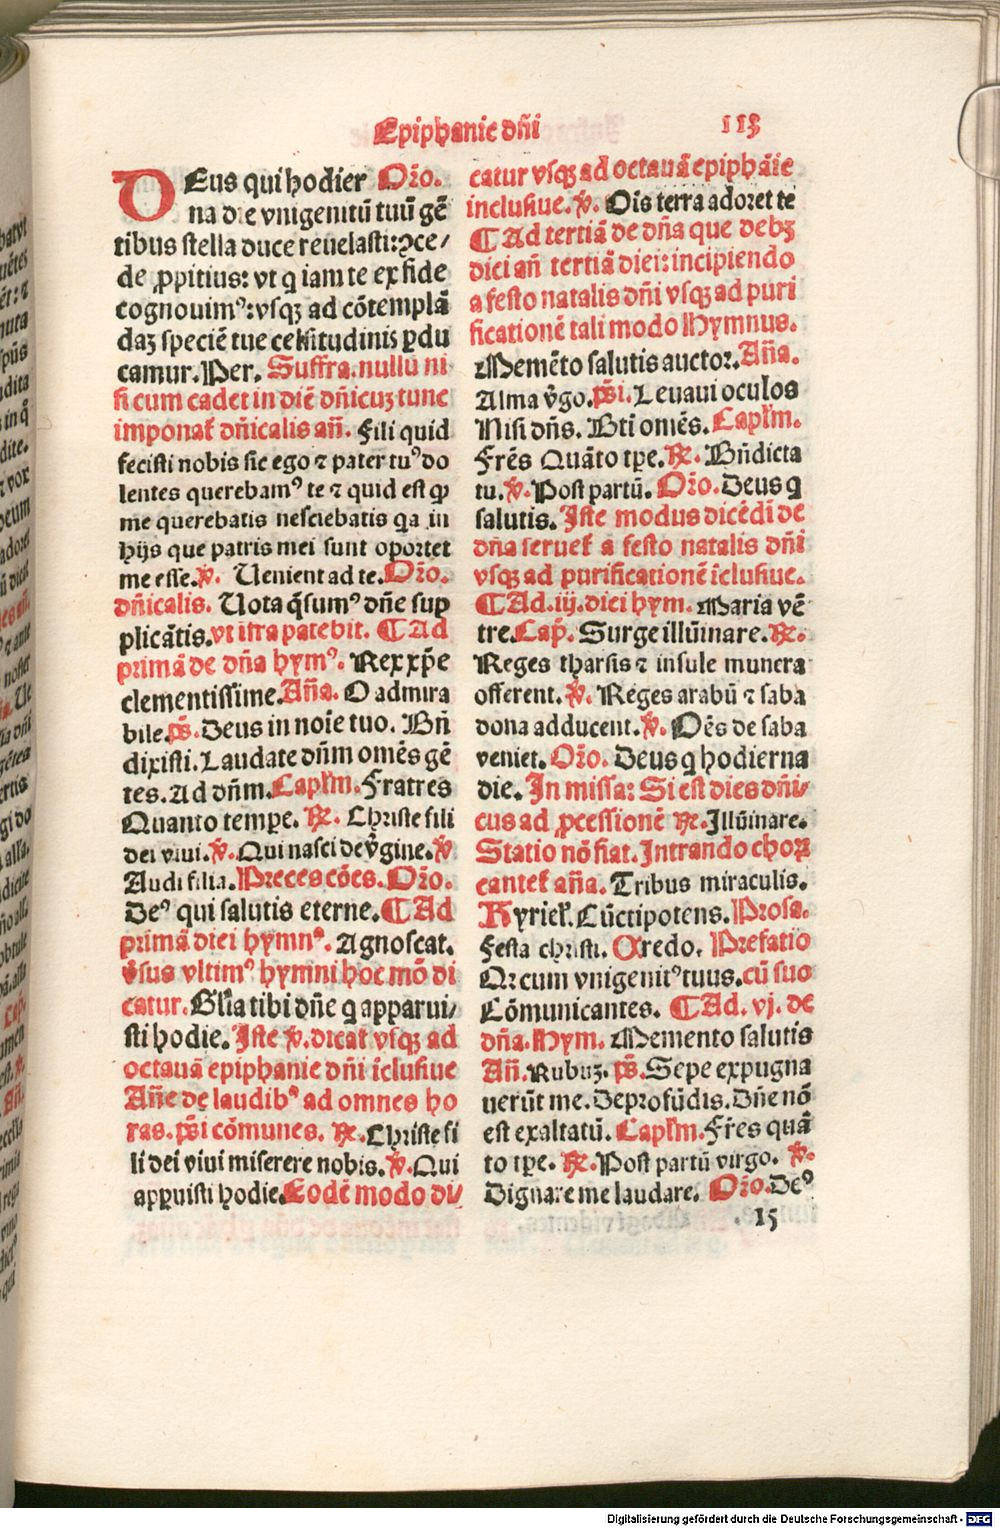 Epiphanie dñi
113
DEus qui hodier Oŕo.
na die vnigenitū tuū gē
tibus stella duce reuelasti: ↄce/
de ꝓpitius: vt q iam te ex fide
cognouimꝰ: vsqꝫ ad cōtemplā
daꝫ speciē tue celsitudinis ꝑdu
camur. Per. Suffra. nullū ni
si cum cadet in diē dñicuꝫ tunc
imponaŧ dñicalis añ. Fili quid
fecisti nobis sic ego ⁊ pater tuꝰ do
lentes querebamꝰ te ⁊ quid est ꝙ
me querebatis nesciebatis qa in
hijs que patris mei sunt oportet
me esse. ℣. Uenient ad te. Oŕo.
dñicalis. Uota q̄sumꝰ dñe sup
plicātis. vt ifra patebit. ¶ Ad
primā de dña hymꝰ. Rex xp̄e
clementissime. Aña. O admira
bile. ps̄. Deus in noīe tuo. Bñ
dixisti. Laudate dñm omēs gē
tes. Ad dñm. Capłm. Fratres
Quanto tempꝛe. ℟. Christe fili
dei viui. ℣. Qui nasci de v̄gine. ℣
Audi filia. Preces cōes. Oŕo.
Deꝰ qui salutis eterne. ¶ Ad
primā diei hymnꝰ. Agnoscat.
v̄sus vltimꝰ hymni hoc mō di
catur. Glīa tibi dñe q apparui/
sti hodie. Iste ℣. dicaŧ vsqꝫ ad
octauā epiphanie dñi īclusiue
Añe de laudibꝰ ad omnes ho
ras. ps̄i cōmunes. ℟. Christe fi
li dei viui miserere nobis. ℣. Qui
apꝑuisti hodie. Eodē modo di/
catur vsqꝫ ad octauā epiphāie
inclusiue. ℣. Ois terra adoret te
¶ Ad tertiā de dña que debꝫ
dici añ tertiā diei: incipiendo
a festo natalis dñi vsqꝫ ad puri
ficationē tali modo Hymnus.
Memēto salutis auctor. Aña.
Alma v̄go. ps̄i. Leuaui oculos
Nisi dñs. Bti omēs. Capłm.
Frēs Quāto tꝑe. ℟. Bñdicta
tu. ℣. Post partū. Oŕo. Deus q
salutis. Iste modus dicēdi de
dña serueŧ a festo natalis dñi
vsqꝫ ad purificationē īclusiue.
¶ Ad. iij. diei hym. Maria vē
tre. Cap̄. Surge illūinare. ℟.
Reges tharsis ⁊ insule munera
offerent. ℣. Reges arabū ⁊ saba
dona adducent. ℣. Oēs de saba
veniet. Oŕo. Deus q hodierna
die. In missa: Si est dies dñi/
cus ad ꝓcessionē ℟. Illūinare.
Statio nō fiat. Intrando choꝝ
canteŧ aña. Tribus miraculis.
Kyrieł. Cūctipotens. Prosa.
Festa christi. Credo. Prefatio
Qꝛ cum vnigenitꝰ tuus. cū suo
Cōmunicantes. ¶ Ad. vj. de
dña. Hym. Memento salutis
Añ. Rubuꝫ. ps̄. Sepe expugna
uerūt me. De profūdis. Dñe nō
est exaltatū. Capłm. Frēs quā
to tꝑe. ℟. Post partū virgo. ℣.
Dignare me laudare. Oŕo. Deꝰ
15
Digitalisierung gefördert durch die Deutsche Forschungsgemeinschaft - DFG